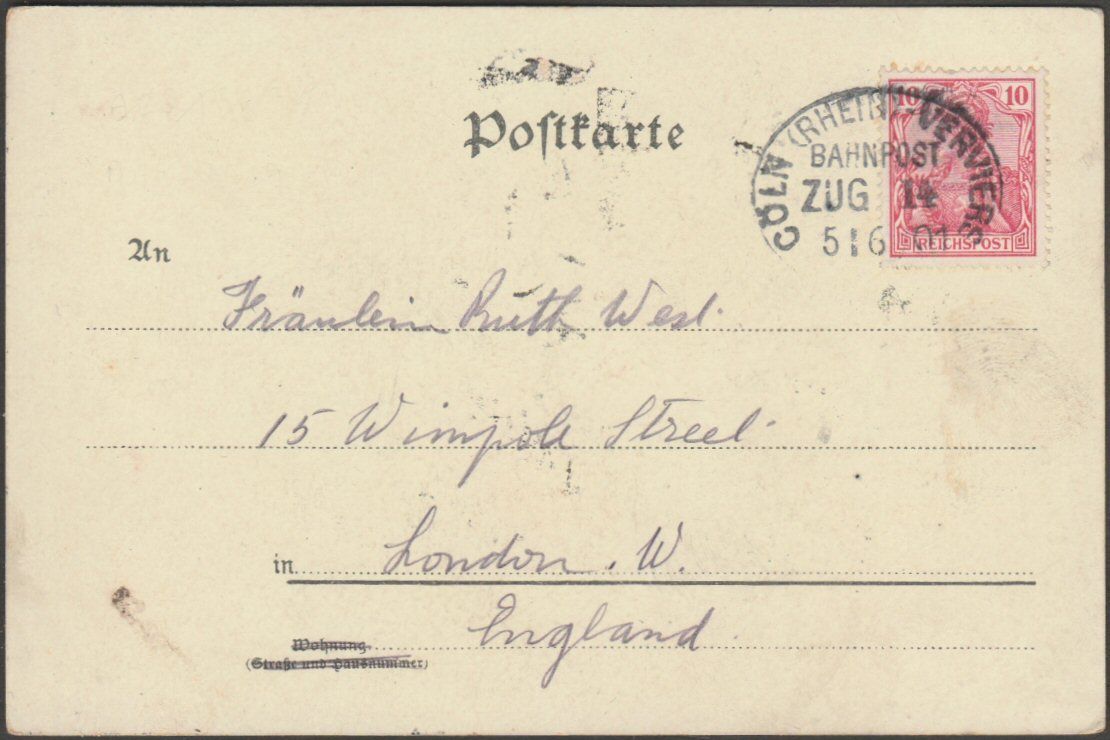 Poſtkarte
CÖLN (RHEIN)-VERVIERS
BAHNPOST
ZUG 14
5 6 01
10 10
REICHSPOST
An
Fräulein Ruth West.
15 Wimpole Street.
in London. W.
England.
Wohnung
(Straße und Hausnummer)